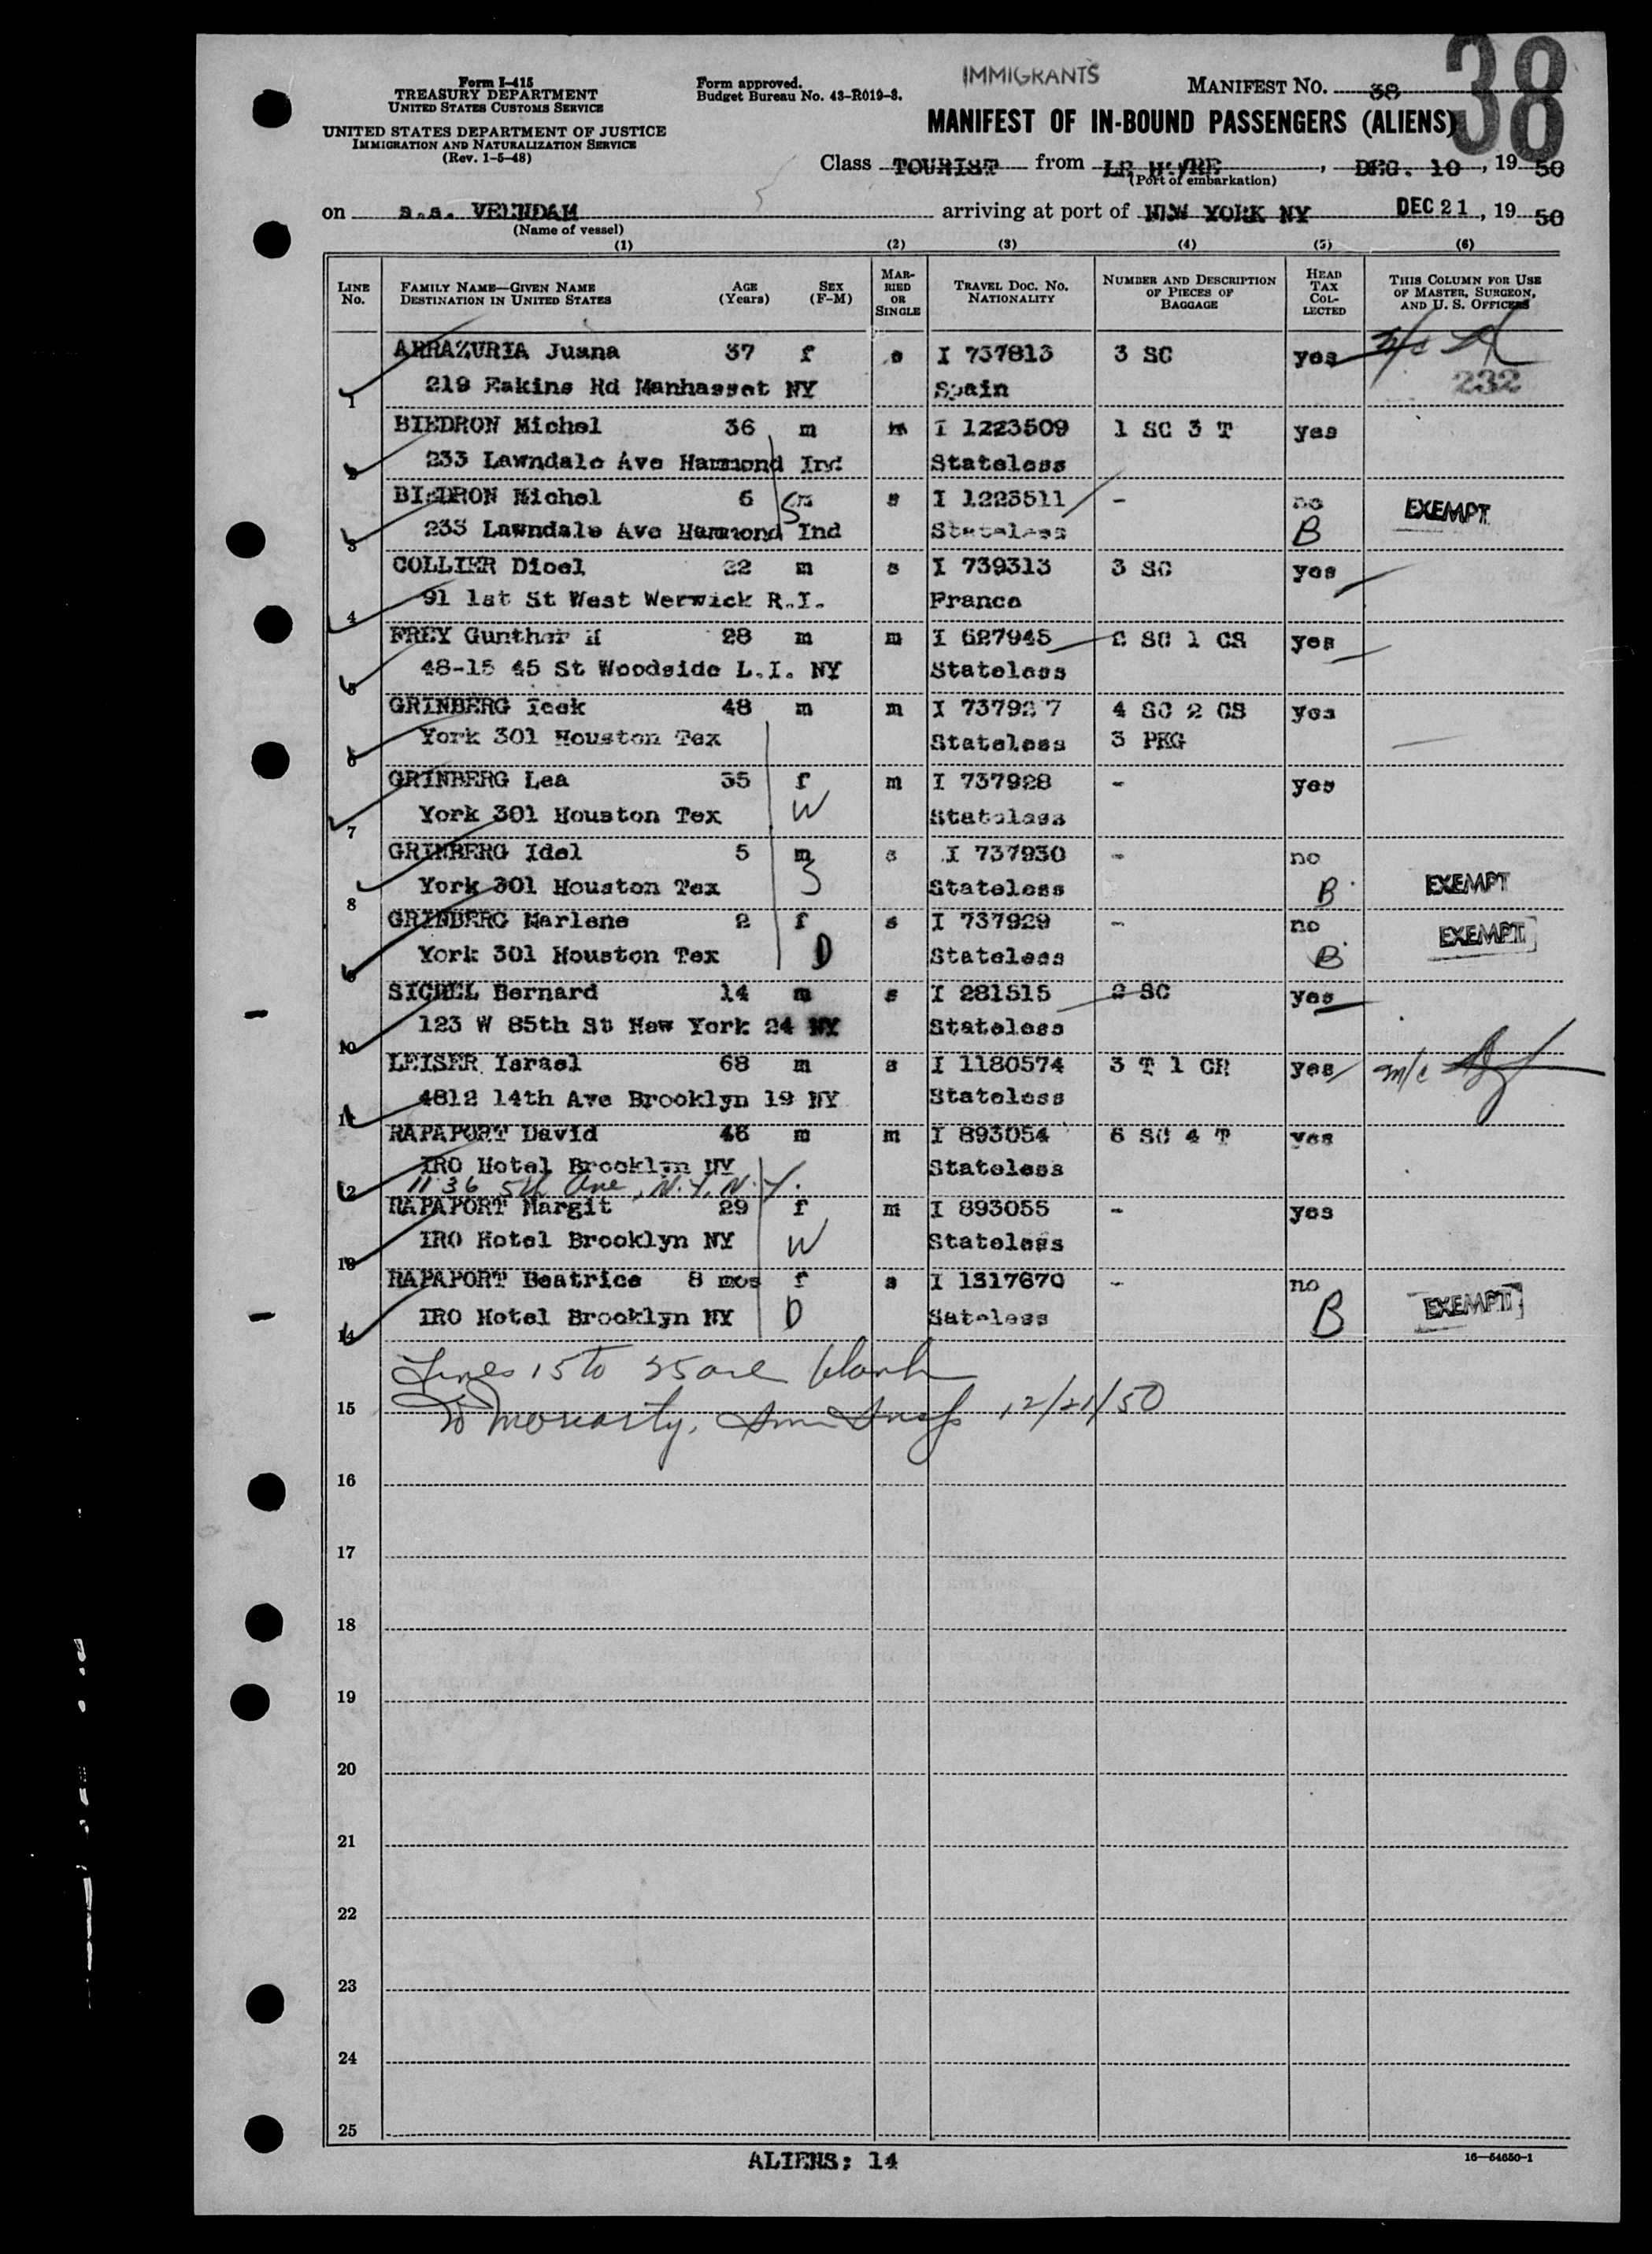 38
Form I-415
TREASURY DEPARTMENT
UNITED STATES CUSTOMS SERVICE
UNITED STATES DEPARTMENT OF JUSTICE
IMMIGRATION AND NATURALIZATION SERVICE
(Rev. 1-5-48)
Form approved.
Budget Bureau No. 43-R019-3.
IMMIGRANTS
MANIFEST NO. 38
MANIFEST OF IN-BOUND PASSENGERS (ALIENS)
Class TOURIST from LE HAVRE, DEC. 10, 19 50
(Port of embarkation)
on s.s. VEENDAM arriving at port of NEW YORK NY DEC 21, 19 50
(Name of vessel)
(1) (2) (3) (4) (5) (6)
LINE No. FAMILY NAME—GIVEN NAME DESTINATION IN UNITED STATES AGE (Years) SEX (F-M) MARRIED OR SINGLE TRAVEL DOC. NO. NATIONALITY NUMBER AND DESCRIPTION OF PIECES OF BAGGAGE HEAD TAX COLLECTED THIS COLUMN FOR USE OF MASTER, SURGEON, AND U. S. OFFICERS
ARRAZURIA Juana 37 f s I 737813 3 SC yes
1 219 Eakins Rd Manhasset NY Spain 232
BIEDRON Michel 36 m m I 1223509 1 SC 3 T yes
2 233 Lawndale Ave Hammond Ind Stateless
BIEDRON Michel 6 m s I 1223511 - no EXEMPT
3 233 Lawndale Ave Hammond Ind S Stateless B
COLLIER Dioel 22 m s I 739313 3 SC yes
4 91 1st St West Werwick R.I. France
FREY Gunther H 28 m m I 627945 2 SC 1 CS yes
5 48-15 45 St Woodside L.I. NY Stateless
GRINBERG Icek 48 m m I 737927 4 SC 2 CS yes
6 York 301 Houston Tex Stateless 3 PKG
GRINBERG Lea 35 f m I 737928 - yes
7 York 301 Houston Tex W Stateless
GRINBERG Idel 5 m s I 737930 - no
8 York 301 Houston Tex S Stateless B EXEMPT
GRINBERG Marlene 2 f s I 737929 - no EXEMPT
9 York 301 Houston Tex D Stateless B
SICHEL Bernard 14 m s I 281515 2 SC yes
10 123 W 85th St New York 24 NY Stateless
LEISER Israel 68 m s I 1180574 3 T 1 CR yes m/c
11 4812 14th Ave Brooklyn 19 NY Stateless
RAPAPORT David 46 m m I 893054 6 SC 4 T yes
IRO Hotel Brooklyn NY Stateless
12 1136 5th Ave, N.Y. N.Y.
RAPAPORT Margit 29 f m I 893055 - yes
13 IRO Hotel Brooklyn NY W Stateless
RAPAPORT Beatrice 8 mos f s I 1317670 - no
14 IRO Hotel Brooklyn NY D Sateless B EXEMPT
Lines 15 to 25 are blank
15 Moriarty, 12/21/50
16
17
18
19
20
21
22
23
24
25
ALIENS: 14
16—54650-1